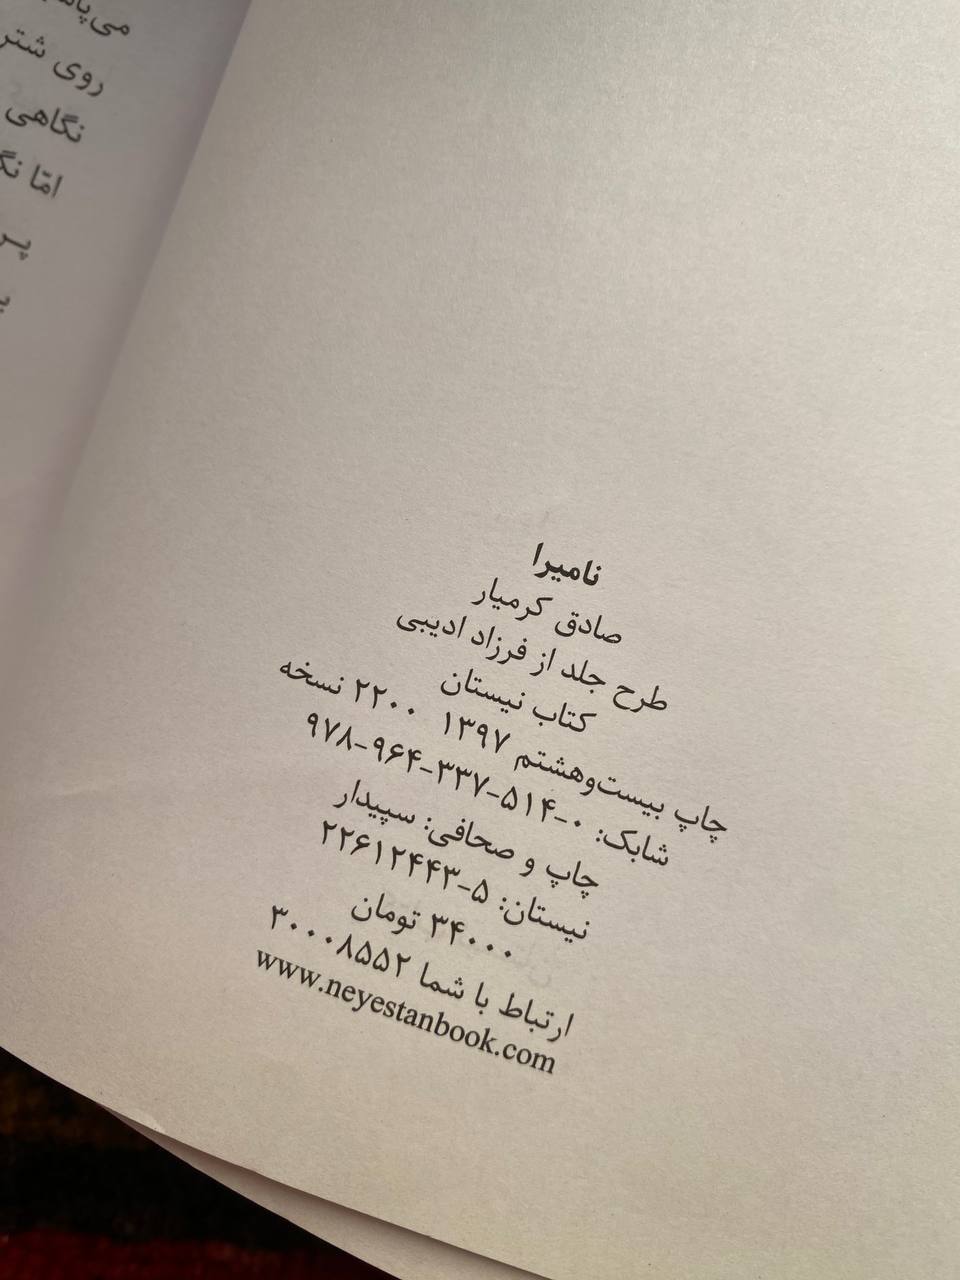 روی شتر
نگاهی
امّا
نامیرا
صادق کرمیار
طرح جلد از فرزاد ادیبی
کتاب نیستان
چاپ بیست‌وهشتم ۱۳۹۷ ۲۲۰۰ نسخه
شابک: ۰-۵۱۴-۳۳۷-۹۶۴-۹۷۸
چاپ و صحافی: سپیدار
نیستان: ۵-۲۲۶۱۲۴۴۳
۳۴۰۰۰ تومان
ارتباط با شما ۳۰۰۰۸۵۵۲
www.neyestanbook.com